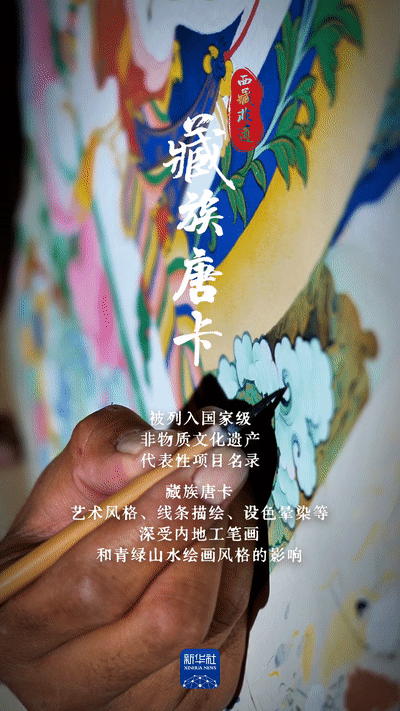 西藏非遗
藏族唐卡
被列入国家级
非物质文化遗产
代表性项目名录
藏族唐卡
艺术风格、线条描绘、设色晕染等
深受内地工笔画
和青绿山水绘画风格的影响
新华社
XINHUA NEWS